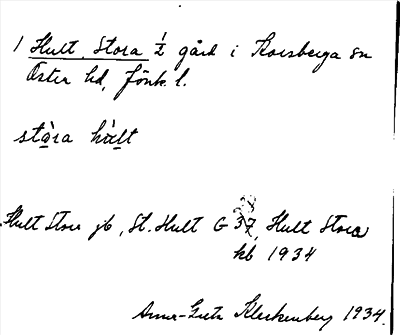 1 Hult, Stora ½ gård i Korsberga sn
Öster hd, Jönk. l.
stòra hùlt
Hult Stora jb, St. Hult G 37, Hult Stora
kb 1934
Anna-Greta 1934.